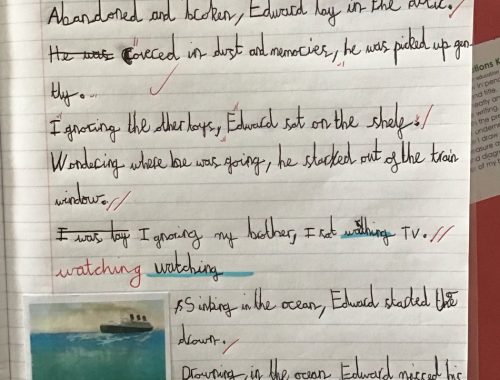 Abandoned and broken, Edward lay in the attic.
He was Covered in dust and memories, he was picked up gen
tly.
Ignoring the other toys, Edward sat on the shelf.
Wondering where he was going, he stared out of the train
window.
I was lay Ignoring my brother, I sat TV.
watching watching
Sinking in the ocean, Edward started
drown.
Drowning in the ocean Edward missed his